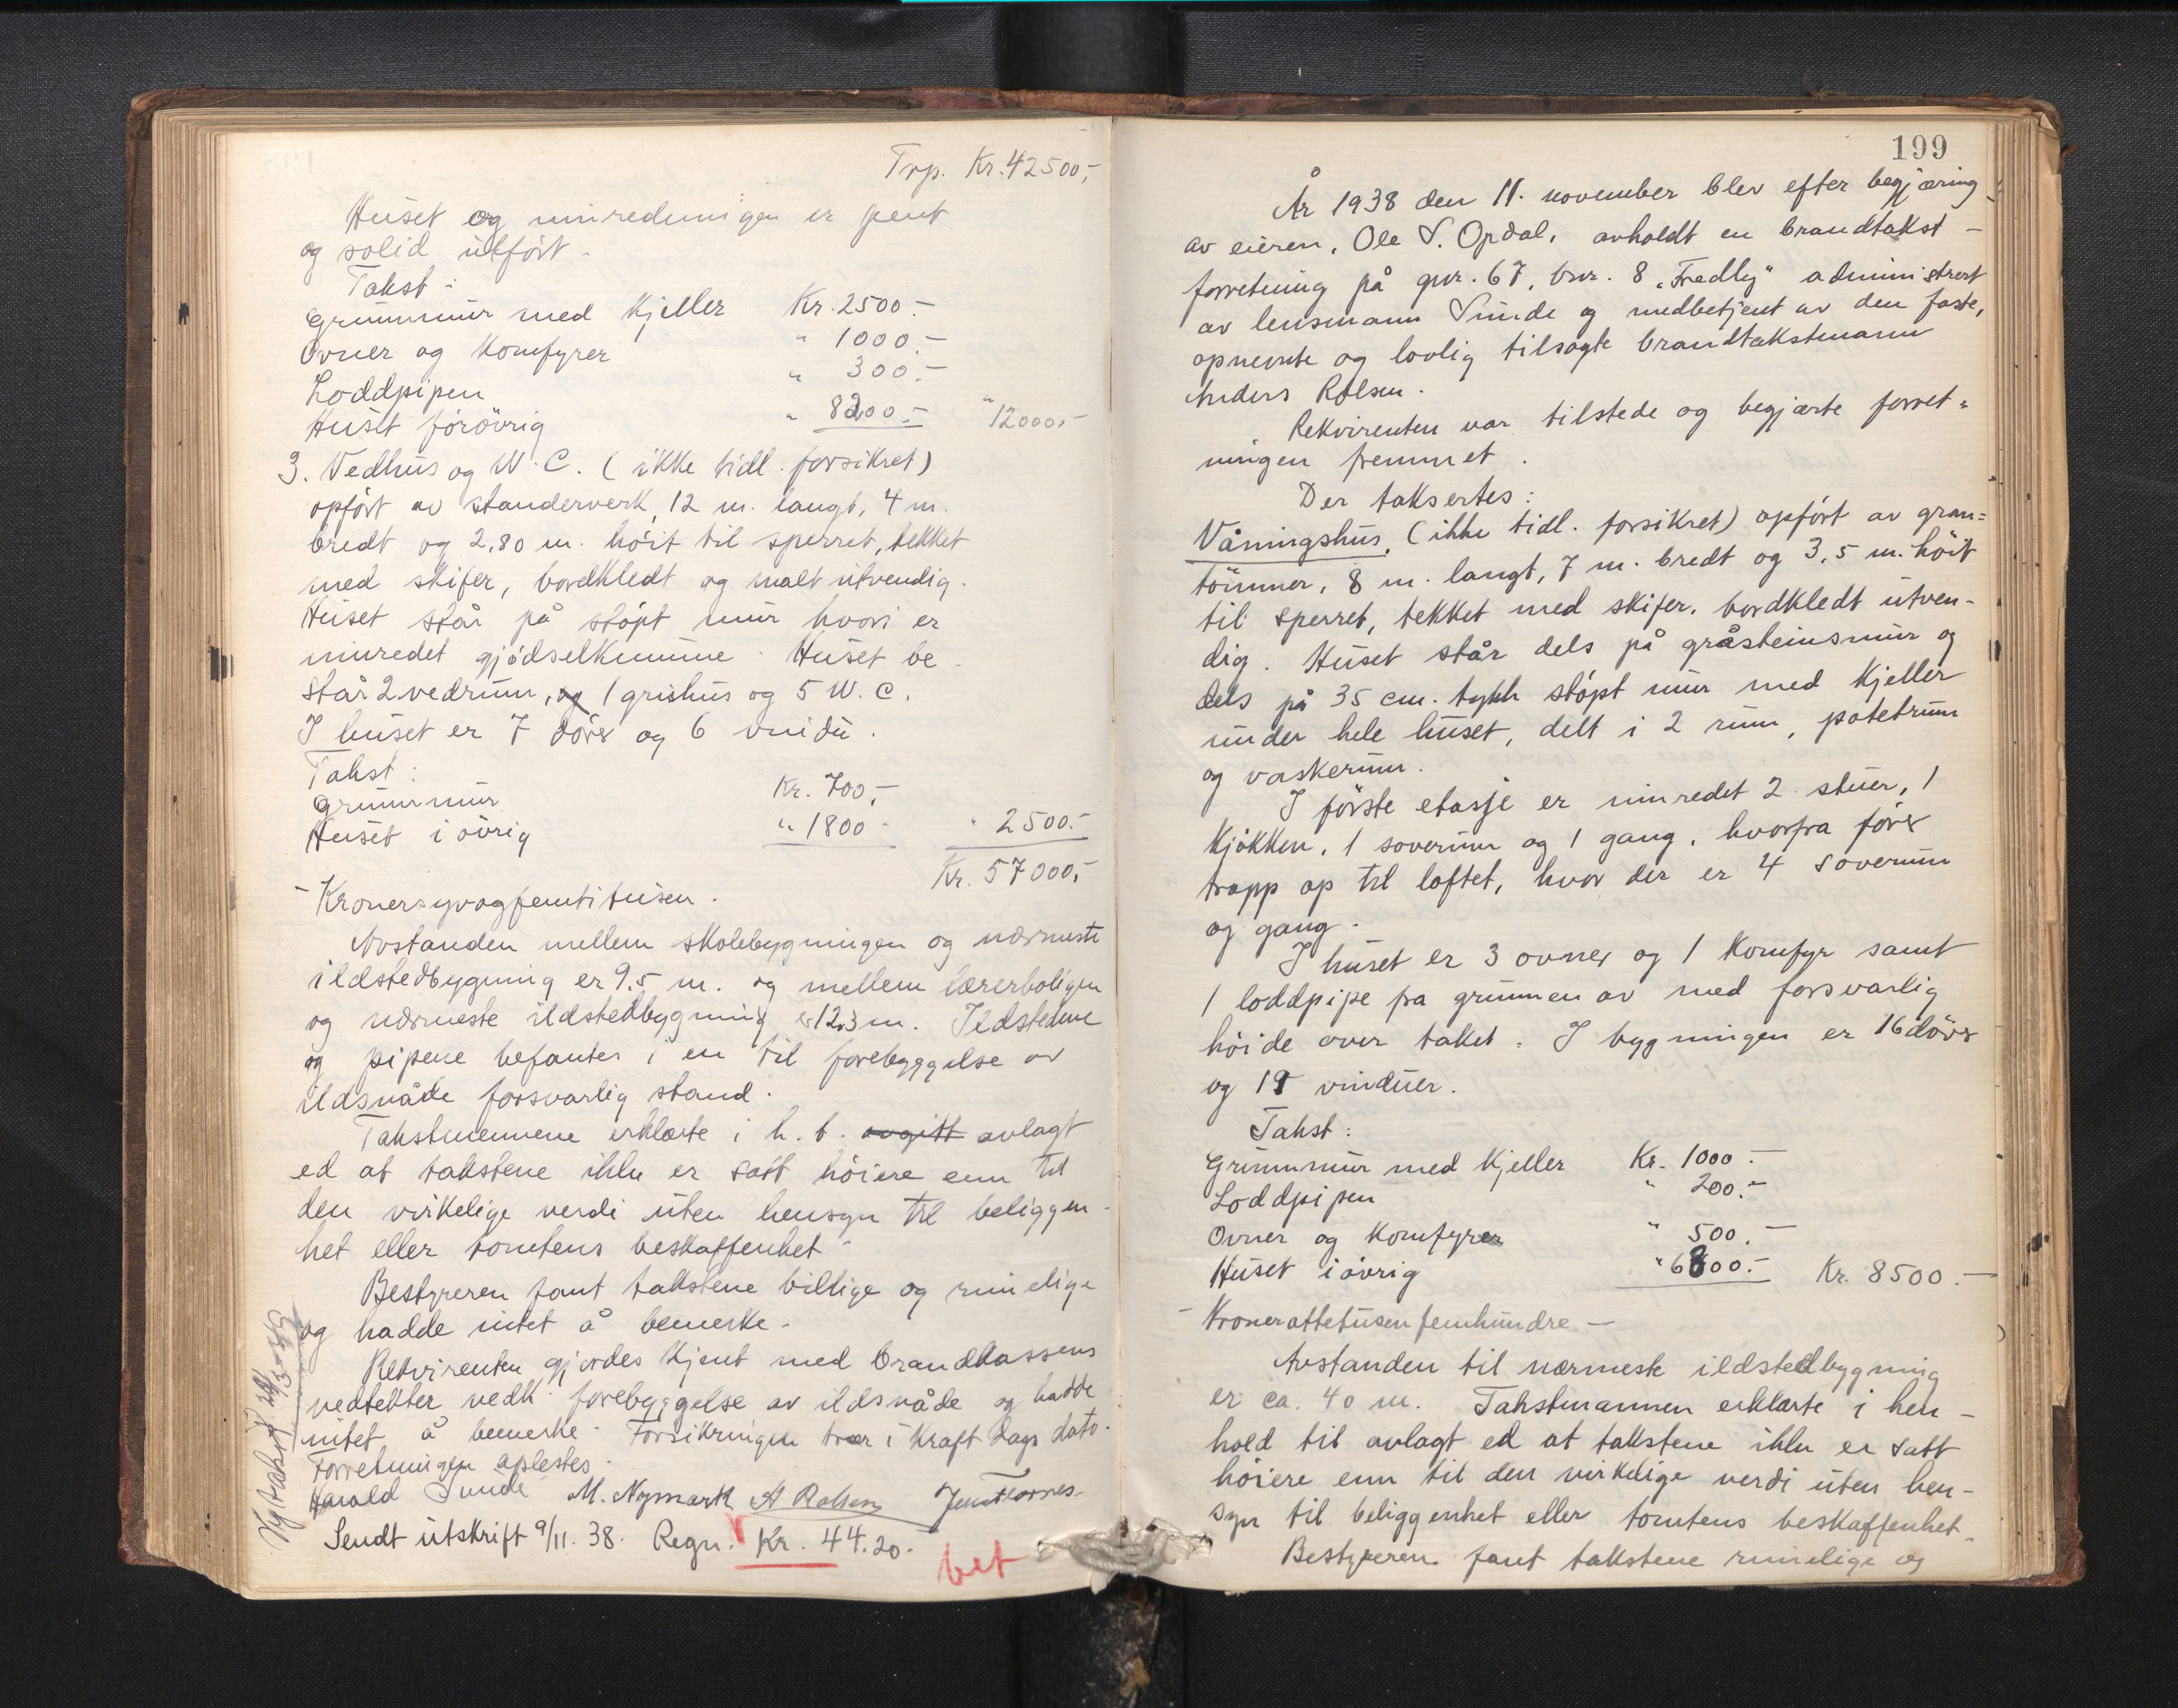 Trp. Kr. 42500,-
Huset og innredningen er pent
og solid utført.
Takst:
Grunnmur med kjeller Kr. 2500.-
Ovner og komfyrer " 1000.-
Loddpipen " 300.-
Huset forøvrig " 8200.- " 12000,-
3. Vedhus og W.C. (ikke tidl. forsikret)
opført av standerverk, 12 m. langt, 4 m.
bredt og 2,80 m. höit til sperret, tekket
med skifer, bordkledt og malt utvendig.
Huset står på støpt mur hvori er
innredet gjødselkumme. Huset be-
står 2 vedrum, og 1 grishus og 5 W.C.
I huset er 7 dører og 6 vindu.
Takst:
Grunnmur Kr. 700,-
Huset i øvrig " 1800.- " 2500.-
Kr. 57000,-
- Kronersyvogfemtitusen.
Avstanden mellem skolebygningen og nærmeste
ildstedbygning er 9.5 m. og mellem lærerboligen
og nærmeste ildstedbygning er 12,3 m. Ildstedene
og pipene befantes i en til forebyggelse av
ildsvåde forsvarlig stand.
Takstmennene erklærte i h. t. avgitt avlagt
ed at takstene ikke er satt höiere enn til
den virkelige verdi uten hensyn til beliggen-
het eller tomtens beskaffenhet.
Bestyreren fant takstene billige og rimelige
og hadde intet å bemerke.
Rekvirenten gjordes kjent med brandkassens
vedtekter vedk. forebyggelse av ildsvåde og hadde
intet å bemerke. Forsikringen trær i kraft dags dato.
Forretningen oplestes.
Harald Sunde M. Nymark A Rolsen
Sendt utskrift 9/11. 38. Regn. Kr. 44.20.
bet
Ny takst
199
År 1938 den 11. november blev efter begjæring
av eieren, Ole S. Opdal, avholdt en brandtakst-
forretning på gnr. 67, bnr. 8 „Fredly" administrert
av lensmann Sunde og medbetjent av den faste,
opnevnte og lovlig tilsagte brandtakstmann
Anders Rolsen.
Rekvirenten var tilstede og begjærte forret=
ningen fremmet.
Der taksertes:
Våningshus, (ikke tidl. forsikret) opført av gran=
tömmer, 8 m. langt, 7 m. bredt og 3,5 m. höit
til sperret, tekket med skifer, bordkledt utven-
dig. Huset står dels på gråsteinsmur og
dels på 35 cm. tykk støpt mur med kjeller
under hele huset, delt i 2 rum, potetrum
og vaskerum.
I første etasje er innredet 2 stuer, 1
kjøkken, 1 soverum og 1 gang, hvorfra fører
trapp op til loftet, hvor der er 4 soverum
og gang.
I huset er 3 ovner og 1 komfyr samt
1 loddpipe fra grunnen av med forsvarlig
höide over taket. I bygningen er 16 dører
og 19 vinduer.
Takst:
Grunnmur med kjeller Kr. 1000.-
Loddpipen " 200.-
Ovner og komfyrer " 500.-
Huset i øvrig " 6800.- Kr. 8500.-
- Kroneråttetusenfemhundre -
Avstanden til nærmeste ildstedbygning
er ca. 40 m. Takstmannen erklærte i hen-
hold til avlagt ed at takstene ikke er satt
höiere enn til den virkelige verdi uten hen-
syn til beliggenhet eller tomtens beskaffenhet.
Bestyreren fant takstene rimelige og